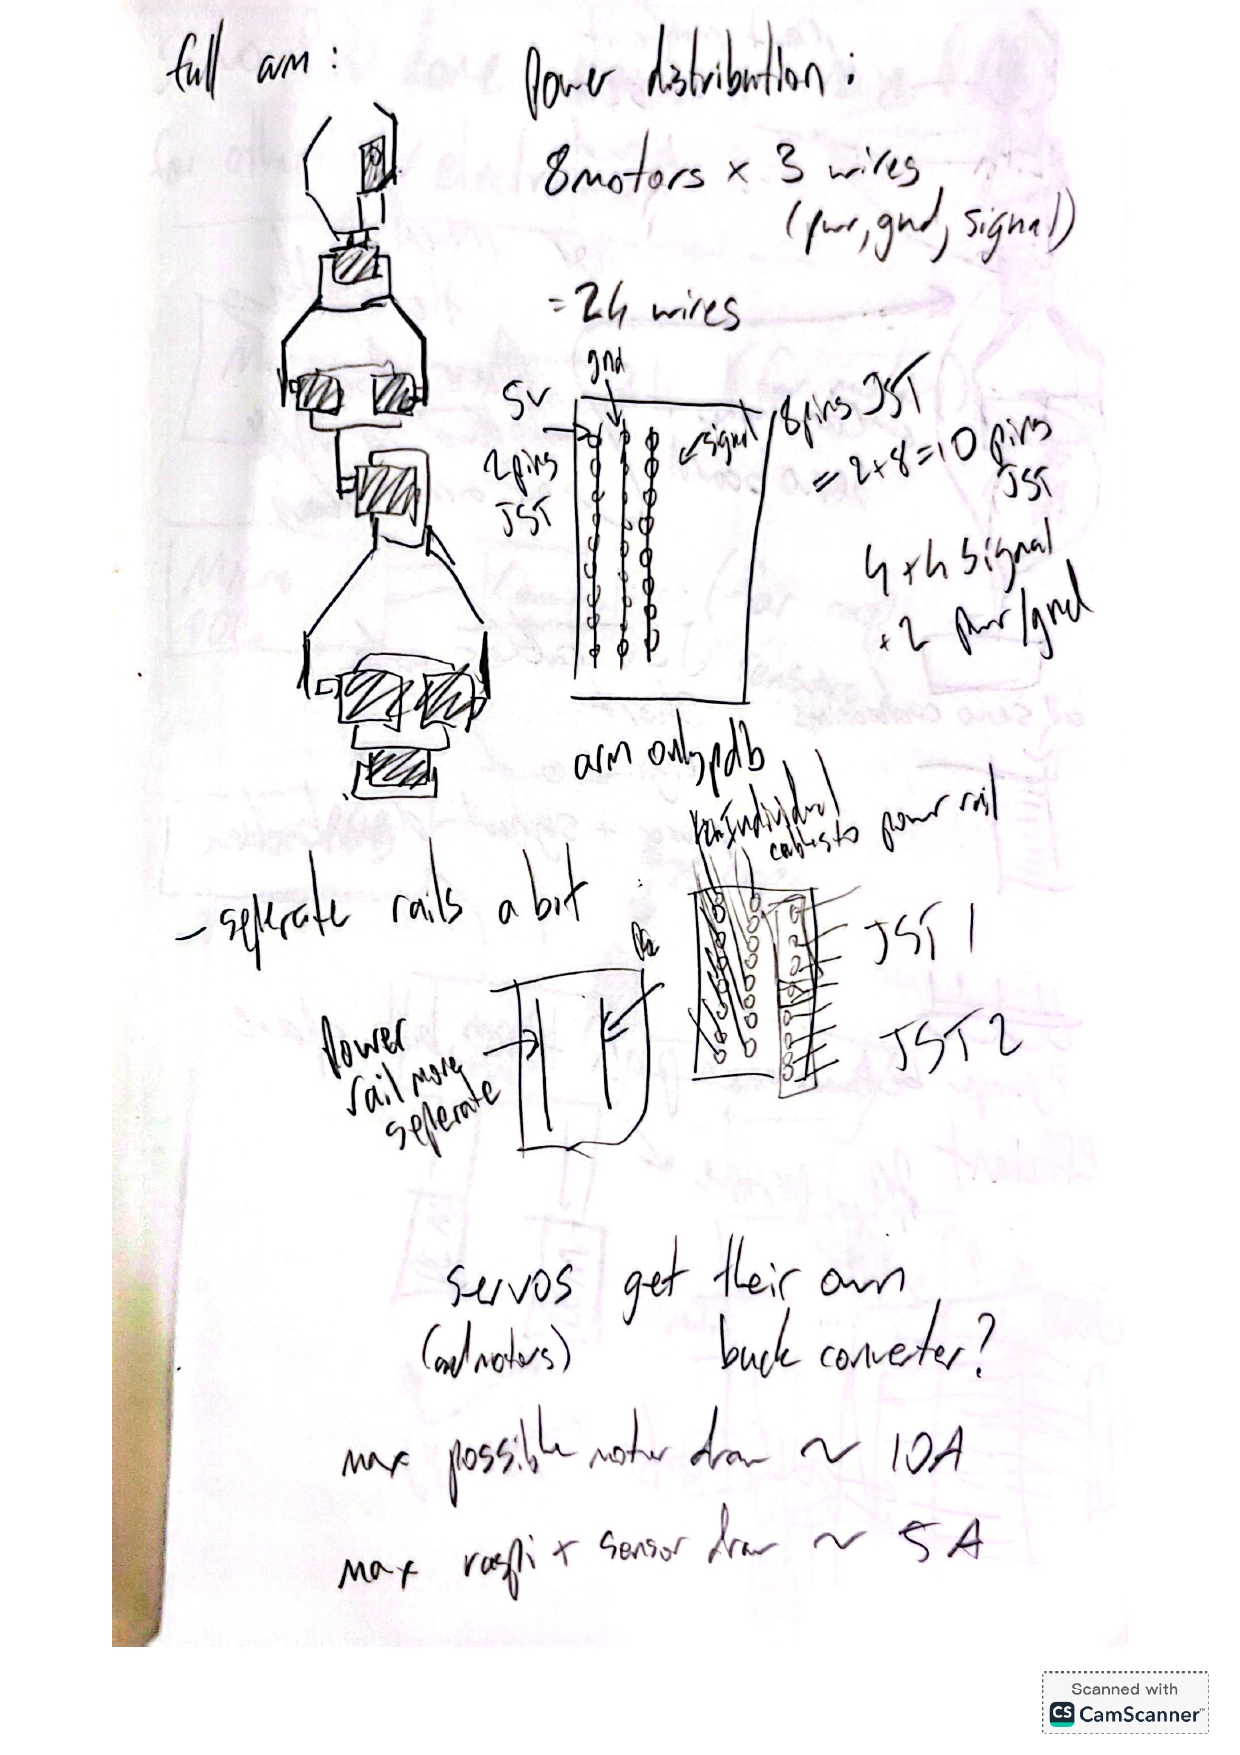 full arm :
Power distribution :
8 motors × 3 wires
(pwr, gnd, signal)
= 24 wires
gnd
5v
2 pins
JST
signal
8 pins JST
= 2+8 = 10 pins
JST
4 + 4 signal
+ 2 pwr/gnd
arm only pdb
individual
cables to power rail
- seperate rails a bit
JST 1
JST 2
Power
rail more
seperate
servos get their own
(and motors) buck converter?
max possible motor draw ~ 10A
max raspi + sensor draw ~ 5A
Scanned with
CS CamScanner